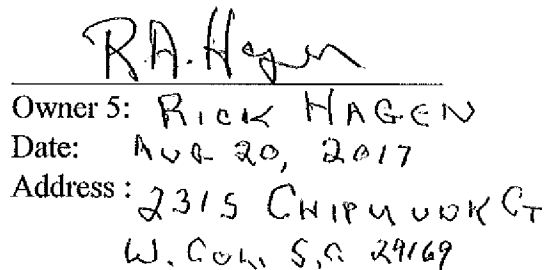 R.A. Hagen
Owner 5: RICK HAGEN
Date: AUG 20, 2017
Address : 2315 CHIPMUNK CT
W. COL. S.C. 29169